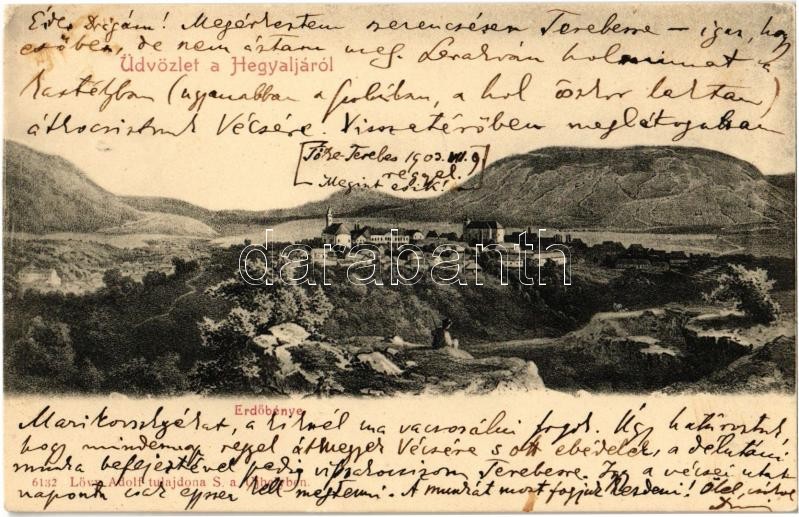 Édes Drágám! Megérkeztem szerencsésen Terebesre — igaz, hogy
esőben, de nem áztam meg. Lerakván holmimat a
Üdvözlet a Hegyaljáról
kastélyban (ugyanabban a szobában, a hol őszkor laktam)
átkocsiztunk Vécsére. Visszatérőben meglátogattam
Tőke-Terebes 1903. VII. 9
reggel.
Megint esik!
darabanth
Erdőbénye
a kiknél ma vacsorálni fogok. Úgy határoztuk
hogy mindennap reggel átmegyek Vécsére s ott ebédelek, a délutáni
munka befejeztével pedig visszakocsizom Terebesre. Így a vécsei utat
6132 Lövy Adolf tulajdona S. a. Ujhelyben.
naponta csak egyszer kell megtenni. A munkát most fogjuk kezdeni! Ölel, csókol